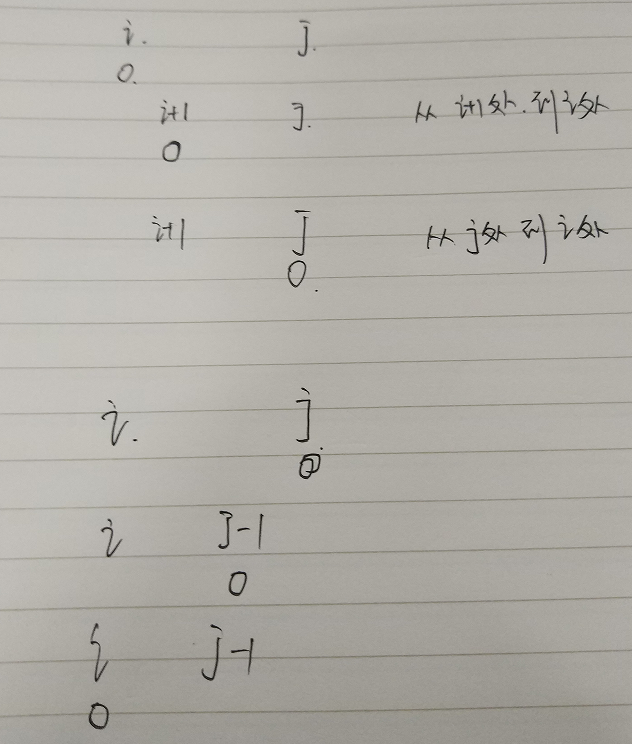 i. j.
0.
i+1 j. 从 i+1处.到i处
0
i+1 j 从 j处 到 i处
0.
i. j
0
i j-1
0
i j-1
0